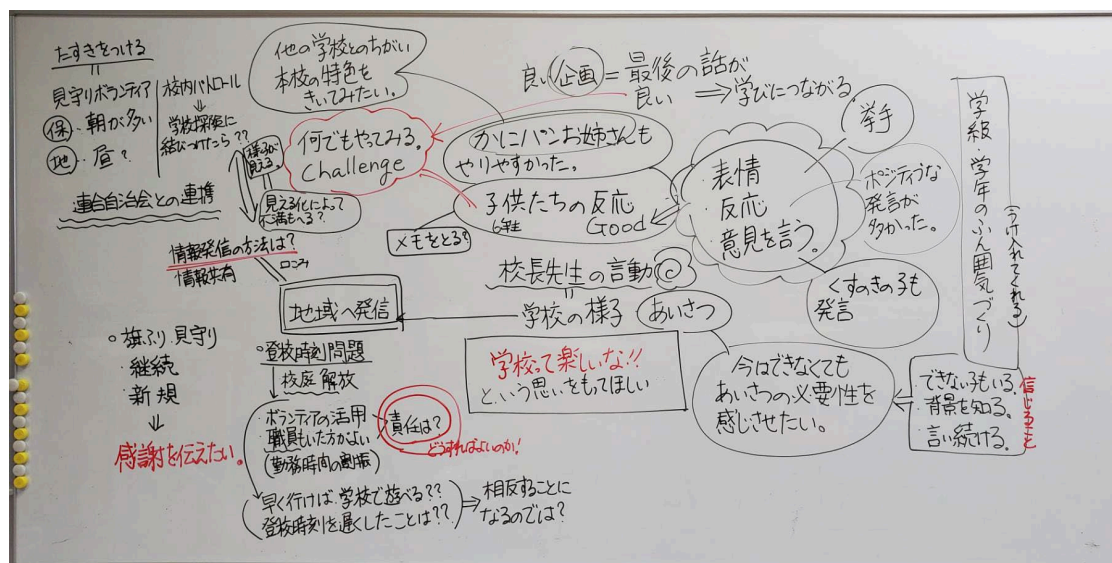 たすきをつける
見守りボランティア
㋭保・朝が多い
地・昼?
校内パトロール
学校探検に
結びつけたら??
連合自治会との連携
様子が
見える。
見える化によって
不満もへる?
情報発信の方法は?
情報共有
口こみ
他の学校とのちがい
本校の特色を
きいてみたい。
何でもやってみる。
Challenge
良い企画=最後の話が
良い ⇒学びにつながる
かにパンお姉さんも
やりやすかった。
子供たちの反応
6年生 Good
メモをとる?
表情
反応
意見を言う。
挙手
ポジティブな
発言が
多かった。
くすのきの子も
発言
学級・学年のふん囲気づくり
(うけ入れてくれる)
校長先生の言動
学校の様子
あいさつ
地域へ発信
学校って楽しいな!!
という思いをもってほしい
今はできなくても
あいさつの必要性を
感じさせたい。
・できない子もいる。
・背景を知る。
・言い続ける。
信じること
○旗ふり 見守り
・継続
・新規
感謝を伝えたい。
○登校時刻問題
校庭解放
・ボランティアの活用
・職員もいた方がよい
(勤務時間の割振)
責任は?
どうすればよいのか!
早く行けば学校で遊べる??
登校時刻を遅くしたことは??
⇒相反することに
なるのでは?